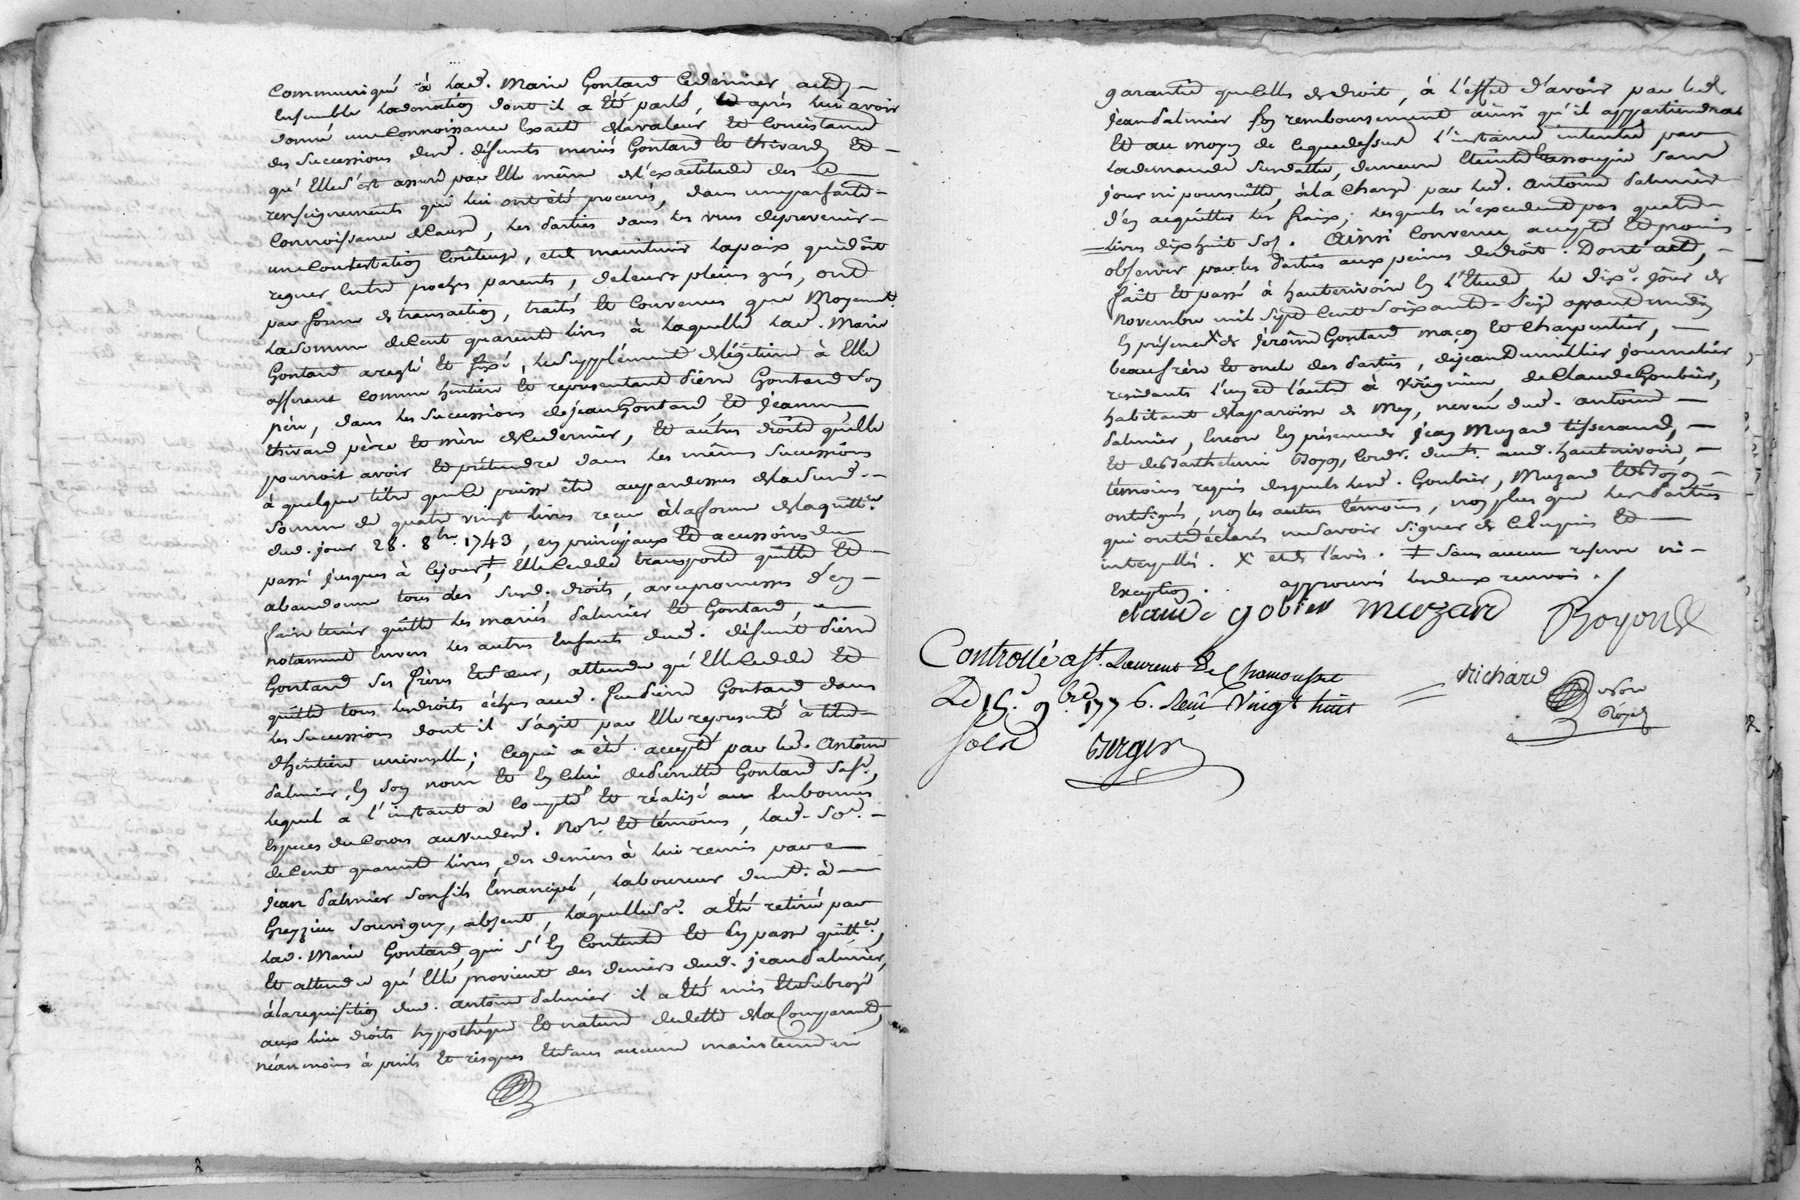 communiqué à lad. Marie Gontard ce dernier acte,
Ensemble la donation dont il a été parlé, et après lui avoir
donné une connoissance Exacte de la valeur et Consistance
des successions desd. défunts mariés Gontard et thivard, et
qu'Elle s'est assuré par Elle même de l'éxactitude des
renseignements qui lui ont été procurés, dans une parfaite
Connoissance de Cause, les Parties dans les vues de prevenir
une Contestation Coûteuse, et de maintenir la paix qui doit
regner entre proches parents, de leurs pleins grés, ont
par forme de transaction, traités et convenus que Moyennt.
la somme de Cent quarente livres à laquelle lad. Marie
Gontard a reglé et fixé, le supplément de légitime à Elle
afferant comme héritiere et representant Pierre Gontard son
père, dans les successions de jean Gontard, et jeanne
thivard père et mère de ce dernier, et autres droits qu'elle
pourroit avoir et prétendre dans les mêmes successions
à quelque titre que ce puisse être au par dessus de la susd.
somme de quatre vingt livres reçue à la forme de la quitt.ce
dud. jour 28. 8bre. 1743, en principaux et accessoires du
passé jusques à ce jour, ≠ Elle Cede transporte quitte et
abandonne tous ses susd. droits, avec promesses d'en
faire tenir quitte les mariés Palmier et Gontard,
notamment Envers les autres Enfants dud. défunt Pierre
Gontard ses frères et sœur, attendu qu'Elle cede et
quitte tous les droits échus aud. feu Pierre Gontard dans
les successions dont il s'agit par Elle representé à titre
d'héritiere universelle; ce qui a été accepté par led. Antoine
Palmier, En son nom et En celui de Pierrette Gontard sa fe.,
lequel a l'instant a compté et réalisé en bonnes
Especes du Cours au vu desd. Nore. et témoins, lad. so.e
de Cent quarente livres, des deniers à lui remis par
jean Palmier son fils Emancipé, laboureur demt. à
Greyzieu souvigny, absent, laquelle so.e a été retirée par
lad. Marie Gontard, qui s'En Contente et En passe quitt.ce,
et attendu qu'Elle provient des deniers dud. jean Palmier,
à la requisition dud. antoine Palmier il a été mis et subrogé
aux lieu droits hypothéque et nature de dette de la Comparante,
néanmoins à perils et risques et sans aucune maintenue ni
garantie quelle de droit, à l'effet d'avoir par led.
jean Palmier son remboursement ainsi qu'il appartiendra
et au moyen de ce que dessus l'instance intentée par
la demande susdatte, demeure Eteinte et assoupie sans
jour ni poursuitte, à la charge par led. Antoine Palmier
d'en acquitter les fraix; lesquels n'excedent pas quatre
livres dix huit sols. Ainsi convenu accepté et promis
observer par les Parties aux peines de droit. Dont acte,
fait et passé à hauterivoire En l'Etude le dixe. jour de
novembre mil sept Cent soixante-seize avant midy
En présence X de jérôme Gontard maçon et charpentier,
beaufrère et oncle des Parties, de jean Dumillier journalier
residants l'un et l'autre à Virignieu, de Claude Goubier,
habitant de la paroisse de Mey, neveu dud. antoine
Palmier, Encore En présence de jean Muzard tisserand,
et de Barthelemi Boyon, Cordr. demts. aud. hauterivoire,
témoins requis desquels lesd. Goubier, Muzard et Boyon
ont signés, non les autres témoins, non plus que les Parties
qui ont déclarés ne savoir signer de ce Enquis et
interpellés. X et de l'avis. ≠ sans aucune reserve ni
Exception. approuvés les deux renvois.
claude gobier Muzard Boyon
Richard
Nore
Royal
Controllé a St. Laurent de Chamousset
Le 15e. 9bre 1776. Reçu Vingt huit
sols
Berger